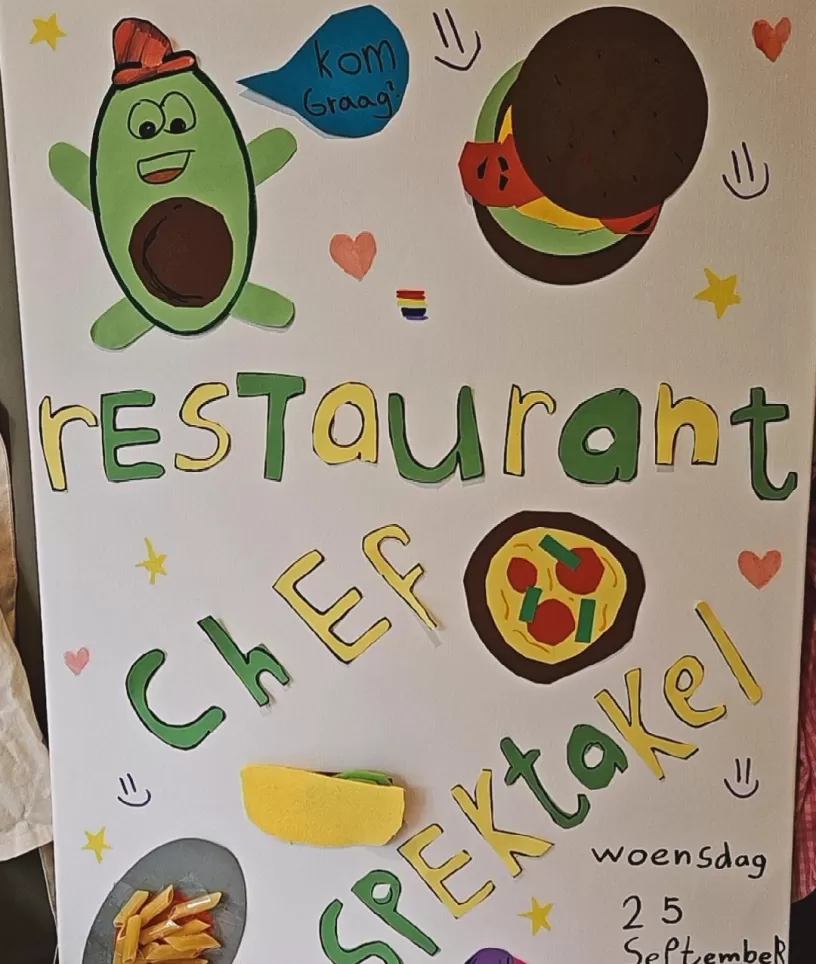 kom
Graag!
rESTaurant
ChEf
SPEKtaKel
woensdag
25
September